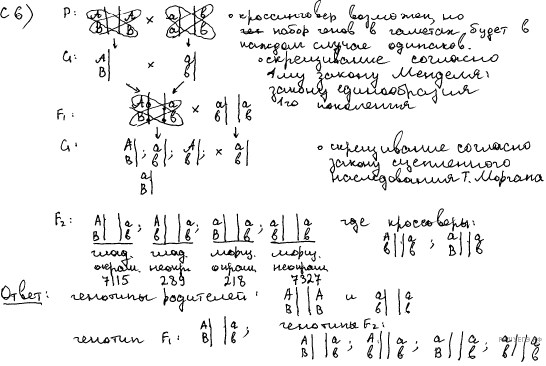 С6) P: A B || A B × a в || a в
◦ кроссинговер возможен, но
набор генов в гаметах будет в
каждом случае одинаков.
G: A B | × a в |
◦ скрещивание согласно
1му закону Менделя:
закону единообразия
1го поколения
F₁: A B || a в × a в || a в
G: A B |; a в |; A в |; a B | × a в |
◦ скрещивание согласно
закону сцепленного
наследования Т. Моргана
F₂: A B || a в; A в || a в; a B || a в; a в || a в где кроссоверы:
A в || a в; a B || a в
глад. глад. морщ. морщ.
окраш. неокр. окраш. неокраш
7115 289 218 7327
Ответ: генотипы родителей: A B || A B и a в || a в
генотип F₁: A B || a в; генотипы F₂:
A B || a в; A в || a в; a B || a в; a в || a в